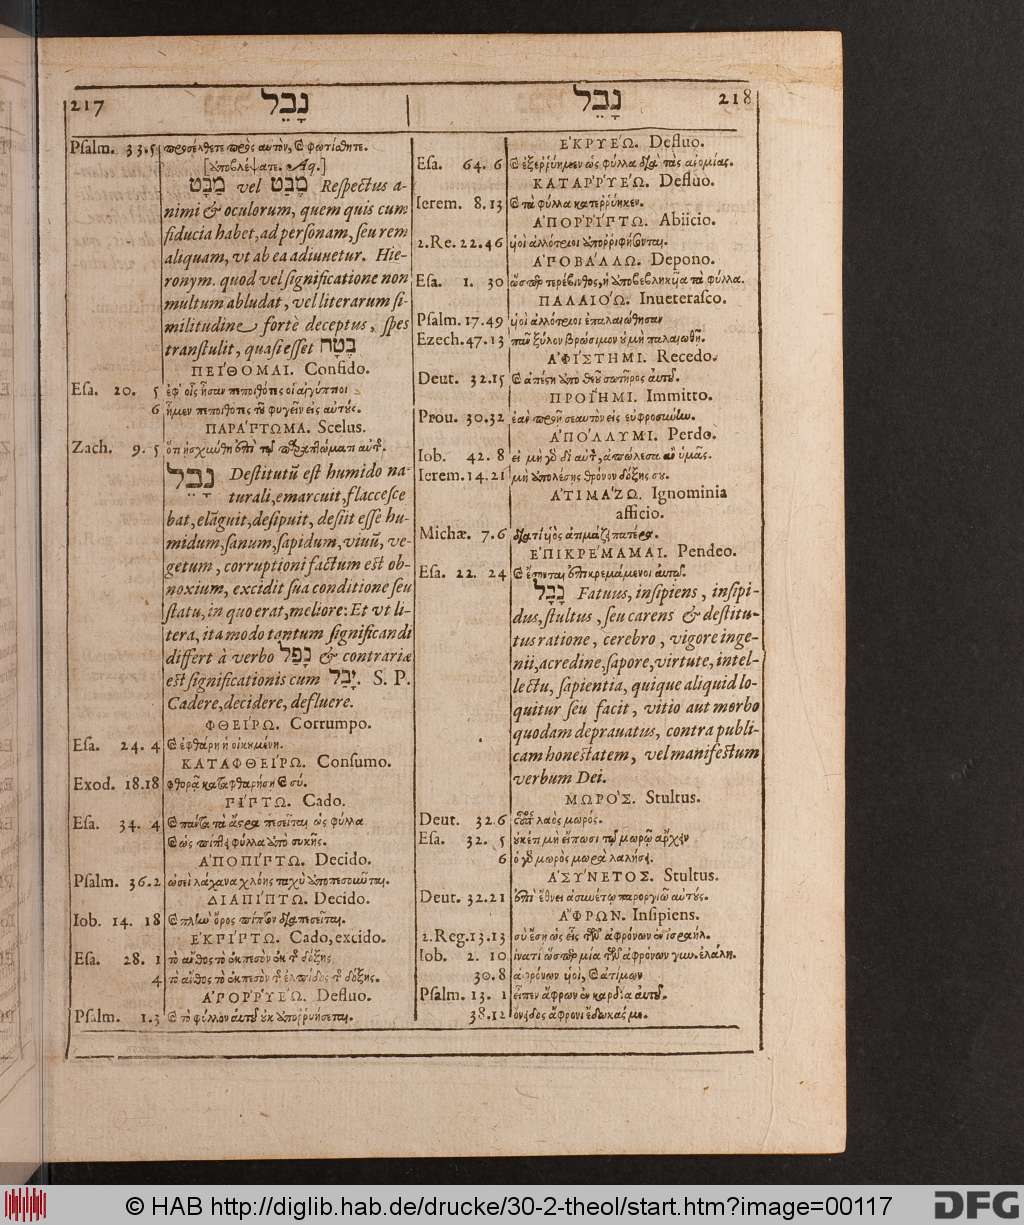 217 נָבֵל
Psalm. 33.5 προσέλθετε πρὸς αυτὸν, & φωτίσθητε.
[ὑποβλέψατε. Aq.]
מַבָּט vel מֶבָּט Respectus a-
nimi & oculorum, quem quis cum
fiducia habet, ad personam, seu rem
aliquam, vt ab ea adiuuetur. Hie-
ronym. quod vel significatione non
multum abludat, vel literarum si-
militudine fortè deceptus, spes
transtulit, quasi esset בֶּטַח
ΠΕΙΘΟΜΑΙ. Confido.
Esa. 20. 5 ἐφ᾽ οἷς ἦσαν πεποιθότες οἱ αἰγύπτιοι
6 ἦμεν πεποιθότες τοῦ φυγεῖν εἰς αὐτούς.
ΠΑΡΑΠΤΩΜΑ. Scelus.
Zach. 9. 5 ὅτι ᾐσχιώθη ἐπὶ τῷ παραπτώματι αὐτῆς.
נָבֵל Destitutū est humido na-
turali, emarcuit, flaccesce
bat, elāguit, desipuit, desiit esse hu-
midum, sanum, sapidum, viuū, ve-
getum, corruptioni factum est ob-
noxium, excidit sua conditione seu
statu, in quo erat, meliore: Et vt li-
tera, ita modo tantum significandi
differt à verbo נָפַל & contrariæ
est significationis cum יָבַל. S. P.
Cadere, decidere, defluere.
ΦΘΕΙΡΩ. Corrumpo.
Esa. 24. 4 & ἐφθάρη ἡ οἰκουμένη.
ΚΑΤΑΦΘΕΙΡΩ. Consumo.
Exod. 18.18 φθορᾷ καταφθαρήσῃ & σύ.
ΠΙΠΤΩ. Cado.
Esa. 34. 4 & πάντα τὰ ἄστρα πεσεῖται ὡς φύλλα
& ὡς πίπτει φύλλα ὑπὸ συκῆς.
ΑΠΟΠΙΠΤΩ. Decido.
Psalm. 36.2 ὡσεὶ λάχανα χλόης ταχὺ ἀποπεσοῦνται.
ΔΙΑΠΙΠΤΩ. Decido.
Iob. 14. 18 & πλὴν ὄρος πίπτον διαπεσεῖται.
ΕΚΠΙΠΤΩ. Cado, excido.
Esa. 28. 1 τὸ ἄνθος τὸ ἐκπεσὸν ἐκ τῆς δόξης
4 τὸ ἄνθος τὸ ἐκπεσὸν τῆς ἐλπίδος τῆς δόξης.
ΑΠΟΡΡΥΕΩ. Defluo.
Psalm. 1.3 & τὸ φύλλον αὐτοῦ οὐκ ἀποῤῥυήσεται.
נָבֵל 218
ΕΚΡΥΕΩ. Defluo.
Esa. 64. 6 & ἐξερρύημεν ὡς φύλλα διὰ τὰς ἀνομίας.
ΚΑΤΑΡΡΥΕΩ. Defluo.
Ierem. 8.13 & τὰ φύλλα κατερρύηκεν.
ΑΠΟΡΡΙΠΤΩ. Abiicio.
2.Re. 22.46 υἱοὶ ἀλλότριοι ἀπορριφήσονται.
ΑΠΟΒΑΛΛΩ. Depono.
Esa. 1. 30 ὥσπερ τερέβινθος, ἡ ἀποβεβληκυῖα τὰ φύλλα.
ΠΑΛΑΙΟΩ. Inueterasco.
Psalm. 17.49 υἱοὶ ἀλλότριοι ἐπαλαιώθησαν
Ezech. 47.13 πᾶν ξύλον βρώσιμον οὐ μὴ παλαιωθῇ.
ΑΦΙΣΤΗΜΙ. Recedo.
Deut. 32.15 & ἀπέστη ἀπὸ θεοῦ σωτῆρος αὐτοῦ.
ΠΡΟΙΗΜΙ. Immitto.
Prou. 30.32 ἐὰν προῇ σεαυτὸν εἰς εὐφροσύνην.
ΑΠΟΛΛΥΜΙ. Perdo.
Iob. 42. 8 εἰ μὴ γὰρ δι᾽ αὐτὸν, ἀπώλεσα ἂν ὑμᾶς.
Ierem. 14.21 μὴ ἀπολέσῃς θρόνον δόξης σου.
ΑΤΙΜΑΖΩ. Ignominia
afficio.
Michæ. 7.6 διατὶ υἱὸς ἀτιμάζει πατέρα.
ΕΠΙΚΡΕΜΑΜΑΙ. Pendeo.
Esa. 22. 24 & ἔσονται ἐπικρεμάμενοι αὐτῷ.
נָבָל Fatuus, insipiens, insipi-
dus, stultus, seu carens & destitu-
tus ratione, cerebro, vigore inge-
nii, acredine, sapore, virtute, intel-
lectu, sapientia, quique aliquid lo-
quitur seu facit, vitio aut morbo
quodam deprauatus, contra publi-
cam honestatem, vel manifestum
verbum Dei.
ΜΩΡΟΣ. Stultus.
Deut. 32.6 οὗτος λαὸς μωρός.
Esa. 32. 5 οὐκέτι μὴ εἴπωσι τῷ μωρῷ ἄρχειν
6 ὁ γὰρ μωρὸς μωρὰ λαλήσει.
ΑΣΥΝΕΤΟΣ. Stultus.
Deut. 32.21 ἐπὶ ἔθνει ἀσυνέτῳ παροργιῶ αὐτούς.
ΑΦΡΩΝ. Insipiens.
2.Reg. 13.13 σὺ ἔσῃ ὡς εἷς τῶν ἀφρόνων ἐν ἰσραήλ.
Iob. 2. 10 ἱνατί ὥσπερ μία τῶν ἀφρόνων γυν. ἐλάλη.
30.8 ἀφρόνων υἱοὶ, & ἀτίμων
Psalm. 13. 1 εἶπεν ἄφρων ἐν καρδίᾳ αὐτοῦ.
38.12 ὄνειδος ἄφρονι ἔδωκάς με.
© HAB http://diglib.hab.de/drucke/30-2-theol/start.htm?image=00117 DFG